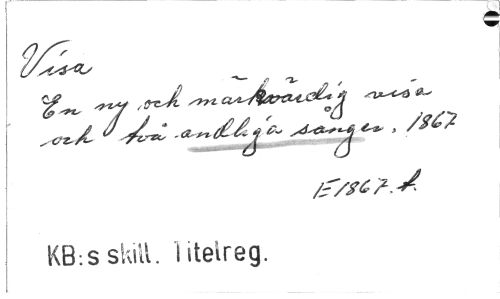 Visa
En ny och märkvärdig visa
och två andliga sånger. 1867
E1867.t.
KB:s skill. Titelreg.